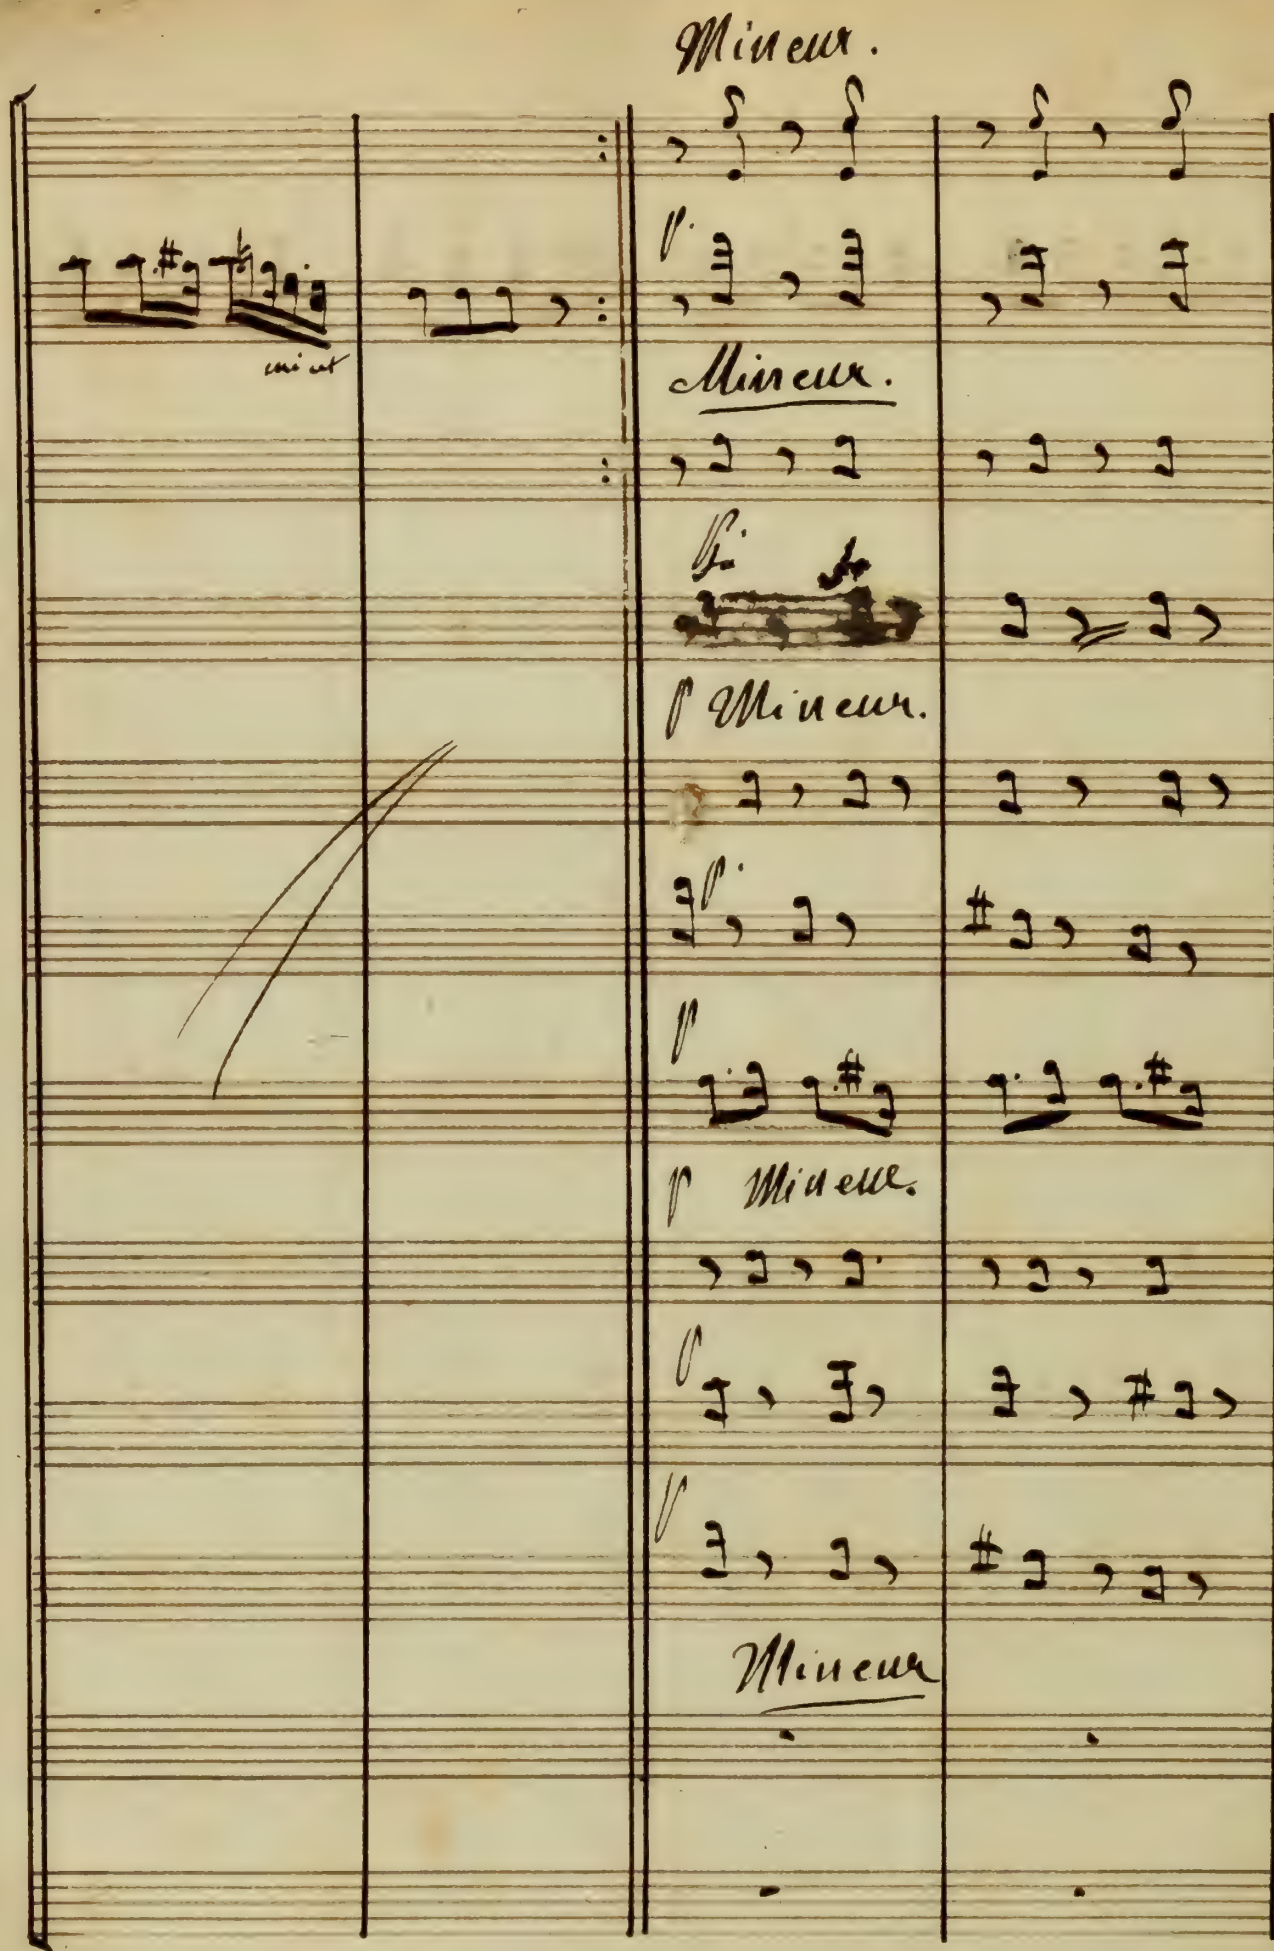 Mineur.
p.
mi ut
Mineur.
p Mineur.
p.
p
p Mineur.
p
p
Mineur